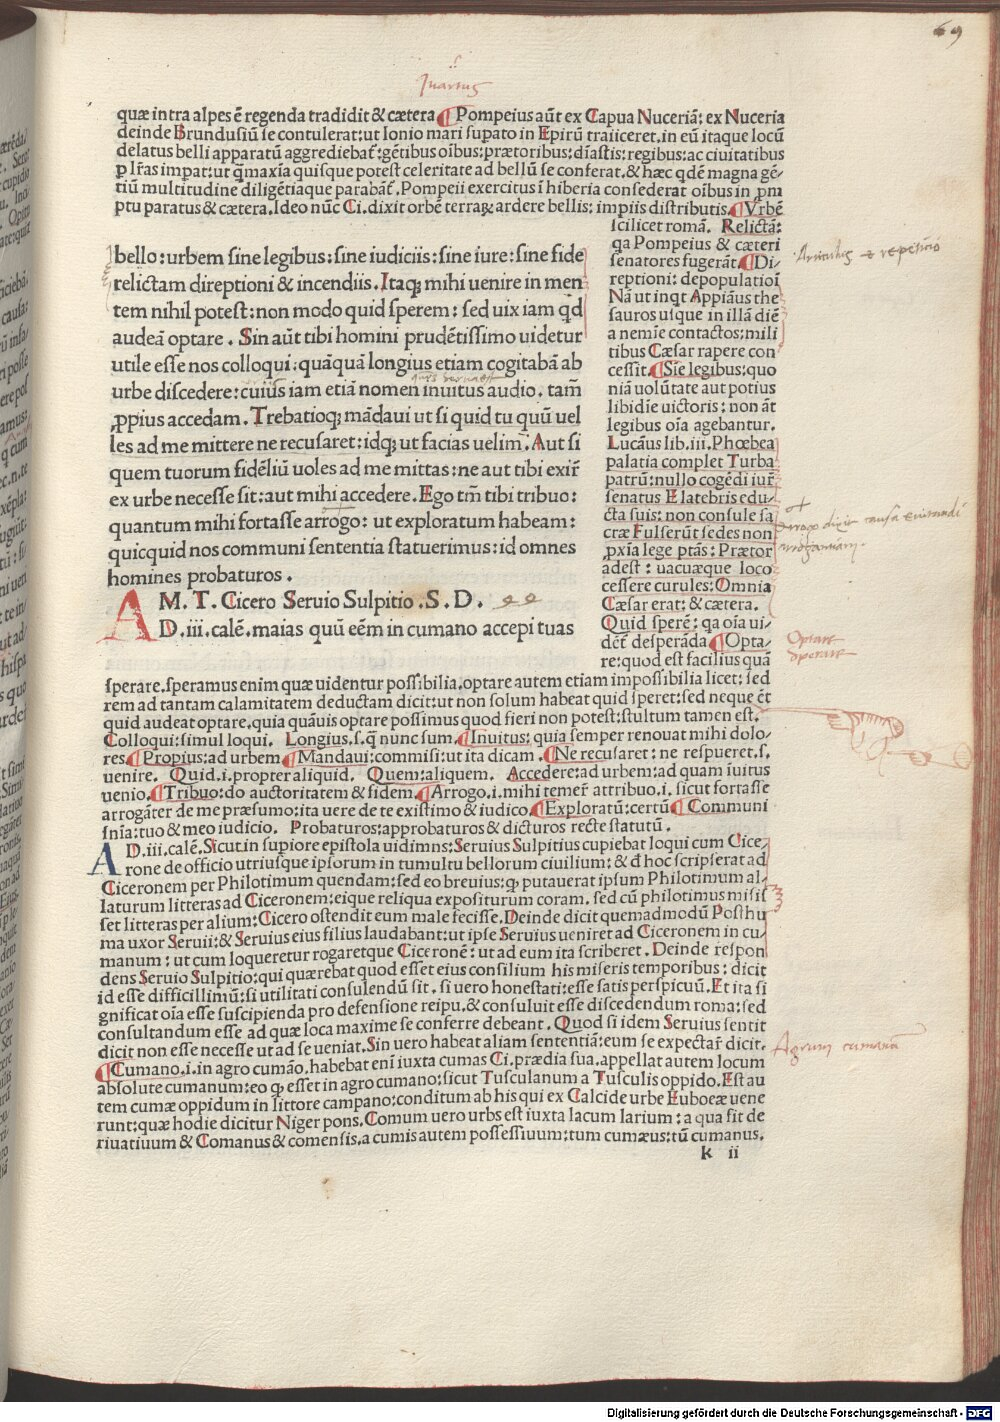 69
Quartus
quæ intra alpes ē regenda tradidit & cætera Pompeius aūt ex Capua Nuceriā: ex Nuceria
deinde Brundusiū se contulerat: ut Ionio mari supato in Epirū traiiceret, in eū itaque locū
delatus belli apparatū aggrediebat: gētibus oībus: prætoribus: dīastis: regibus: ac ciuitatibus
p lr̄as impat: ut q̄maxia quisque potest celeritate ad bellū se conferat. & hæc qdē magna gē-
tiū multitudine diligētiaque parabat̄. Pompeii exercitus ī hiberia consederat oībus in pm
ptu paratus & cætera. Ideo nūc Ci. dixit orbē terraꝝ ardere bellis: impiis distributis. Vrbē
scilicet romā. Relictā:
qa Pompeius & cæteri
senatores fugerāt. Di-
reptioni: depopulatioi
Nā ut inqt Appiāus the
sauros usque in illā diē
a nemīe contactos: mili
tibus Cæsar rapere con
cessit. Sīe legibus: quo
niā uolūtate aut potius
libidīe uictoris: non āt
legibus oīa agebantur.
Lucāus lib. iii. Phœbea
palatia complet Turba
patrū: nullo cogēdi iur̄
senatus E latebris edu-
cta suis: non consule sa
cræ Fulserūt sedes non
ꝓxīa lege ptās: Prætor
adest: uacuæque loco
cessere curules: Omnia
Cæsar erat: & cætera.
Quid sperē: qa oīa ui-
det̄ desperāda. Opta-
re: quod est facilius quā
bello: urbem sine legibus: sine iudiciis: sine iure: sine fide
relictam direptioni & incendiis. Itaqꝫ mihi uenire in men
tem nihil potest: non modo quid sperem: sed uix iam q̄d
audeā optare. Sin aūt tibi homini prudētissimo uidetur
utile esse nos colloqui: quāquā longius etiam cogitabā ab
urbe discedere: cuius iam etiā nomen inuitus audio. tam̄
ꝓpius accedam. Trebatioqꝫ mādaui ut si quid tu quū uel
les ad me mittere ne recusaret: idqꝫ ut facias uelim. Aut si
quem tuorum fidēliū uoles ad me mittas: ne aut tibi exir̄
ex urbe necesse sit: aut mihi accedere. Ego tm̄ tibi tribuo:
quantum mihi fortasse arrogo: ut exploratum habeam:
quicquid nos communi sententia statuerimus: id omnes
homines probaturos.
M. T. Cicero Seruio Sulpitio. S. D.
AD. iii. calē. maias quū eēm in cumano accepi tuas
sperare. speramus enim quæ uidentur possibilia. optare autem etiam impossibilia licet: sed
rem ad tantam calamitatem deductam dicit: ut non solum habeat quid speret: sed neque ēt
quid audeat optare. quia quāuis optare possimus quod fieri non potest: stultum tamen est.
Colloqui: simul loqui. Longius. s. q̄ nunc sum. Inuitus: quia semper renouat mihi dolo-
res. Propius: ad urbem Mandaui: commisi: ut ita dicam. Ne recusaret: ne respueret. s.
uenire. Quid. i. propter aliquid. Quem: aliquem. Accedere: ad urbem: ad quam īuitus
uenio. Tribuo: do auctoritatem & fidem. Arrogo. i. mihi temer̄ attribuo. i. sicut fortasse
arrogāter de me præsumo: ita uere de te existimo & iudico. Exploratū: certū Communi
snīa: tuo & meo iudicio. Probaturos: approbaturos & dicturos recte statutū.
AD. iii. calē. Sicut in supiore epistola uidimns: Seruius Sulpitius cupiebat loqui cum Cice-
rone de officio utriusque ipsorum in tumultu bellorum ciuilium: & d̄ hoc scripserat ad
Ciceronem per Philotimum quendam: sed eo breuius: ꝙ putauerat ipsum Philotimum al-
laturum litteras ad Ciceronem: eique reliqua expositurum coram. sed cū philotimus misis
set litteras per alium: Cicero ostendit eum male fecisse. Deinde dicit quemadmodū Posthu
ma uxor Seruii: & Seruius eius filius laudabant: ut ipse Seruius ueniret ad Ciceronem in cu-
manum: ut cum loqueretur rogaretque Ciceronē: ut ad eum ita scriberet. Deinde respon
dens Seruio Sulpitio: qui quærebat quod esset eius consilium his miseris temporibus: dicit
id esse difficillimū: si utilitati consulendū sit. si uero honestati: esse satis perspicuū. Et ita si
gnificat oīa esse suscipienda pro defensione reipu. & consuluit esse discedendum roma: sed
consultandum esse ad quæ loca maxime se conferre debeant. Quod si idem Seruius sentit
dicit non esse necesse ut ad se ueniat. Sin uero habeat aliam sententiā: eum se expectar̄ dicit.
Cumano. i. in agro cumāo. habebat enī iuxta cumas Ci. prædia sua. appellat autem locum
absolute cumanum: eo ꝙ esset in agro cumano: sicut Tusculanum a Tusculis oppido. Est au
tem cumæ oppidum in littore campano: conditum ab his qui ex Calcide urbe Euboeæ uene
runt: quæ hodie dicitur Niger pons. Comum uero urbs est iuxta lacum larium: a qua fit de
riuatiuum & Comanus & comensis. a cumis autem possessiuum: tum cumæus: tū cumanus.
k ii
Articulus et repetitio
Optare
sperare
Agrum cumanū
Digitalisierung gefördert durch die Deutsche Forschungsgemeinschaft - DFG